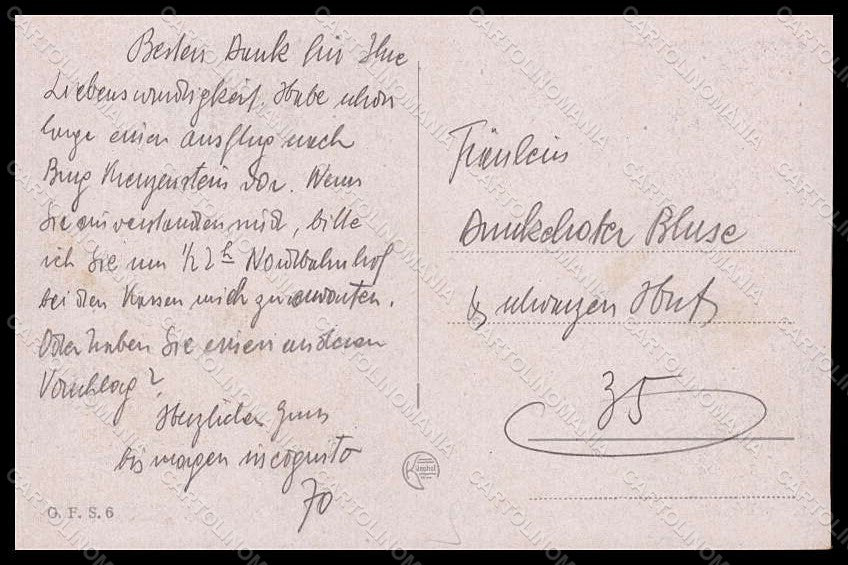 Besten Dank für Ihre
Liebenswürdigkeit. Habe schon
lange einen Ausflug nach
Burg Kreuzenstein vor. Wenn
Sie einverstanden sind, bitte
ich Sie um 1/2 2 h Nordbahnhof
bei den Kassen mich zu erwarten.
Oder haben Sie einen anderen
Vorschlag?
Herzlichen Gruss
bis morgen incognito
70
G. F. S. 6
Fräulein
Dunkelroter Bluse
& schwarzen Hut
35